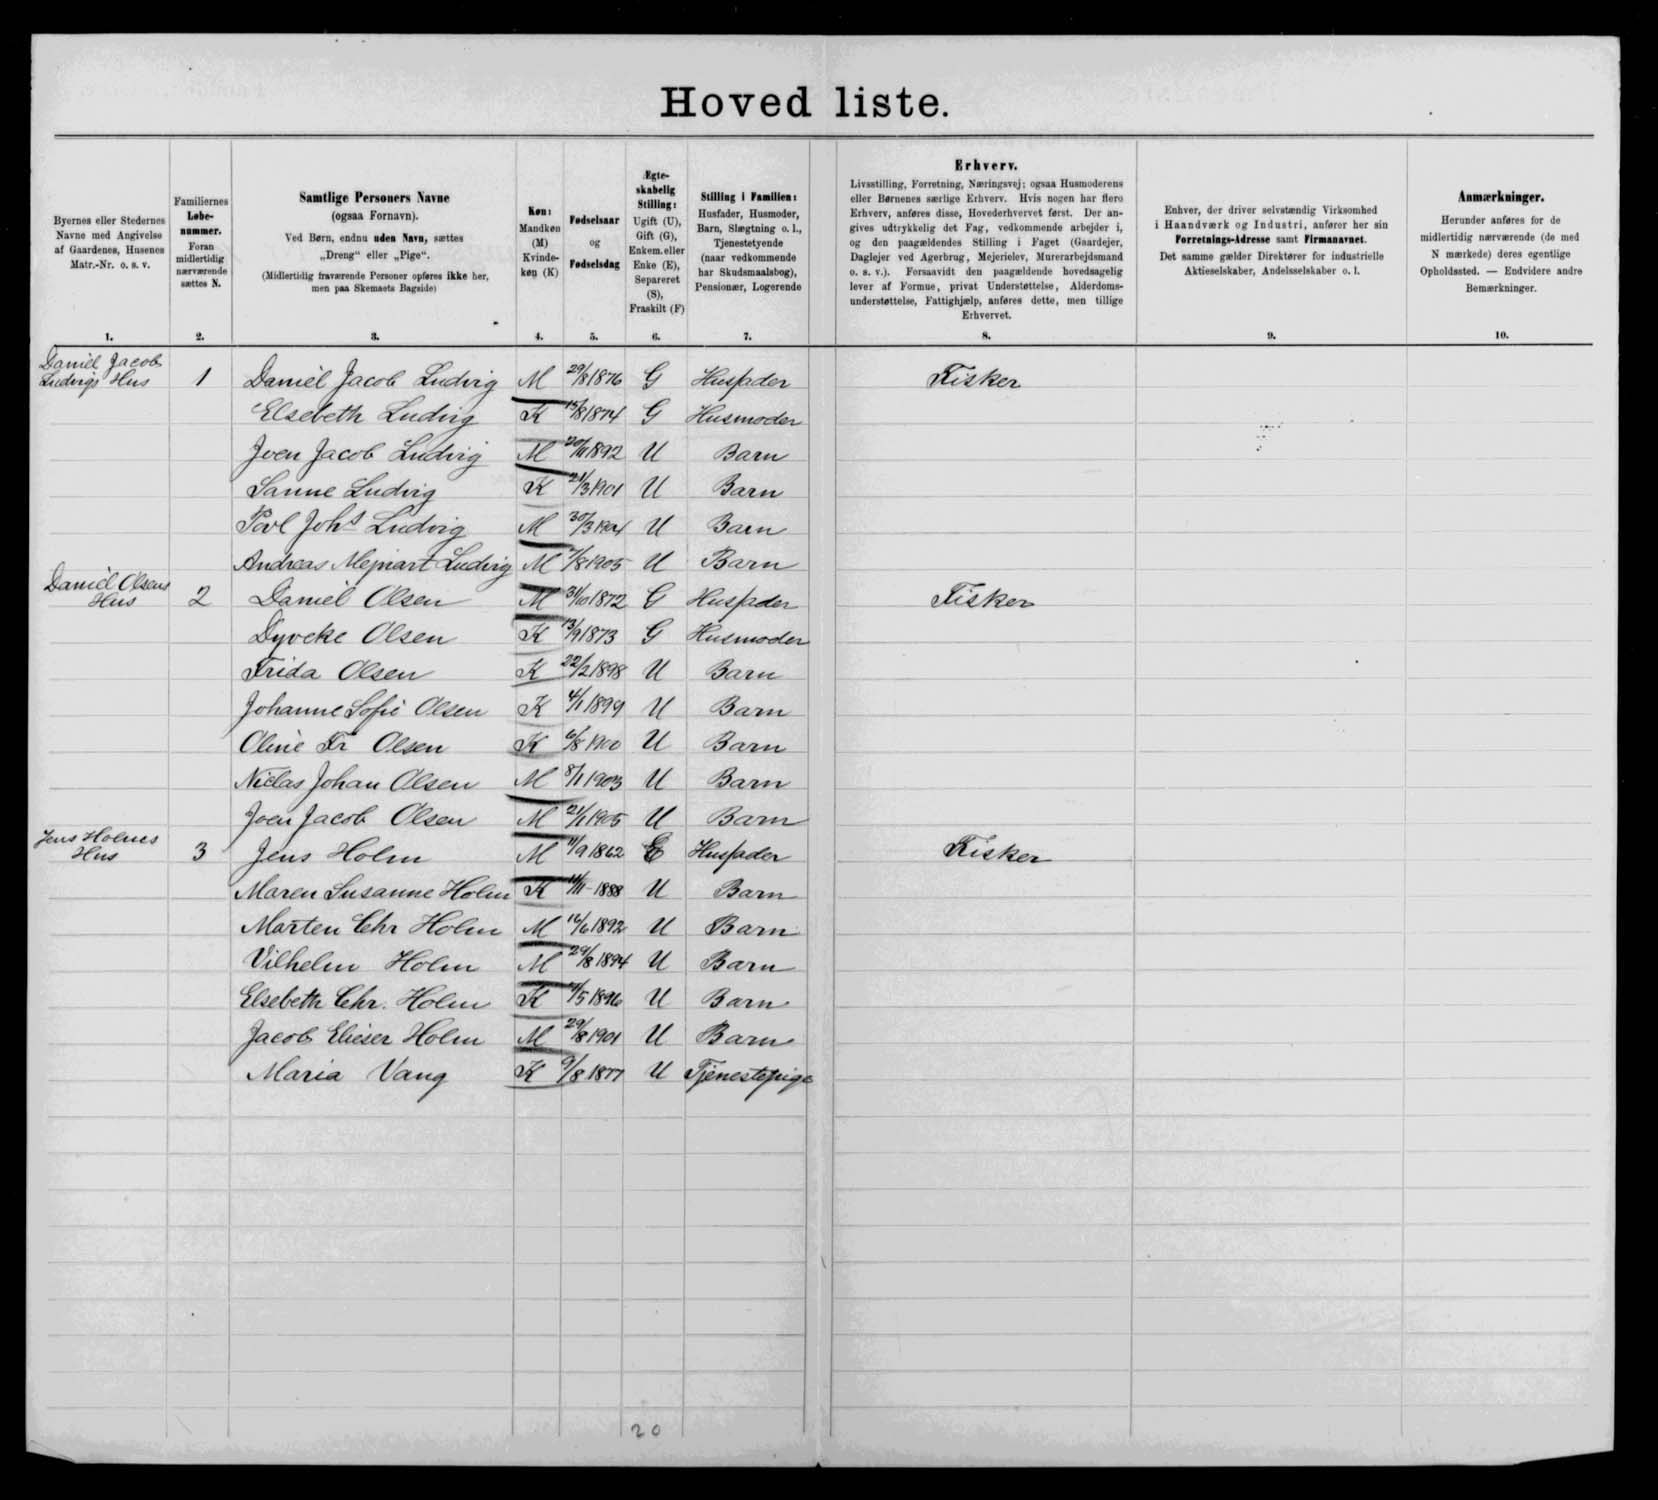 Hoved liste.
Byernes eller Stedernes Navne med Angivelse af Gaardenes, Husenes Matr.-Nr. o. s. v.
Familiernes Løbe-nummer. Foran midlertidig nærværende sættes N.
Samtlige Personers Navne (ogsaa Fornavn). Ved Børn, endnu uden Navn, sættes „Dreng“ eller „Pige“. (Midlertidig fraværende Personer opføres ikke her, men paa Skemaets Bagside)
Køn: Mandkøn (M) Kvinde-køn (K)
Fødselsaar og Fødselsdag
Ægte-skabelig Stilling: Ugift (U), Gift (G), Enkem. eller Enke (E), Separeret (S), Fraskilt (F)
Stilling i Familien: Husfader, Husmoder, Barn, Slægtning o. l., Tjenestetyende (naar vedkommende har Skudsmaalsbog), Pensionær, Logerende
Erhverv. Livsstilling, Forretning, Næringsvej; ogsaa Husmoderens eller Børnenes særlige Erhverv. Hvis nogen har flere Erhverv, anføres disse, Hovederhvervet først. Der an-gives udtrykkelig det Fag, vedkommende arbejder i, og den paagældendes Stilling i Faget (Gaardejer, Daglejer ved Agerbrug, Mejerielev, Murerarbejdsmand o. s. v.). Forsaavidt den paagældende hovedsagelig lever af Formue, privat Understøttelse, Alderdoms-understøttelse, Fattighjælp, anføres dette, men tillige Erhvervet.
Enhver, der driver selvstændig Virksomhed i Haandværk og Industri, anfører her sin Forretnings-Adresse samt Firmanavnet. Det samme gælder Direktører for industrielle Aktieselskaber, Andelsselskaber o. l.
Anmærkninger. Herunder anføres for de midlertidig nærværende (de med N mærkede) deres egentlige Opholdssted. — Endvidere andre Bemærkninger.
1. 2. 3. 4. 5. 6. 7. 8. 9. 10.
Daniel Jacob Ludvigs Hus 1 Daniel Jacob Ludvig M 29/8 1876 G Husfader Fisker
Elsebeth Ludvig K 15/8 1874 G Husmoder
Joen Jacob Ludvig M 20/11 1892 U Barn
Sanne Ludvig K 21/3 1901 U Barn
Povl Johs Ludvig M 30/3 1904 U Barn
Andreas Mejnart Ludvig M 7/8 1905 U Barn
Daniel Olsens Hus 2 Daniel Olsen M 31/10 1872 G Husfader Fisker
Dyveke Olsen K 13/9 1873 G Husmoder
Frida Olsen K 22/2 1898 U Barn
Johanne Sofie Olsen K 4/1 1899 U Barn
Oline Fr Olsen K 6/8 1900 U Barn
Niclas Johan Olsen M 8/1 1903 U Barn
Joen Jacob Olsen M 21/1 1905 U Barn
Jens Holms Hus 3 Jens Holm M 11/9 1862 E Husfader Fisker
Maren Susanne Holm K 11/11 1888 U Barn
Morten Chr Holm M 16/6 1892 U Barn
Vilhelm Holm M 29/8 1894 U Barn
Elsebeth Chr. Holm K 11/5 1896 U Barn
Jacob Elieser Holm M 29/8 1901 U Barn
Maria Vang K 9/8 1877 U Tjenestepige
20